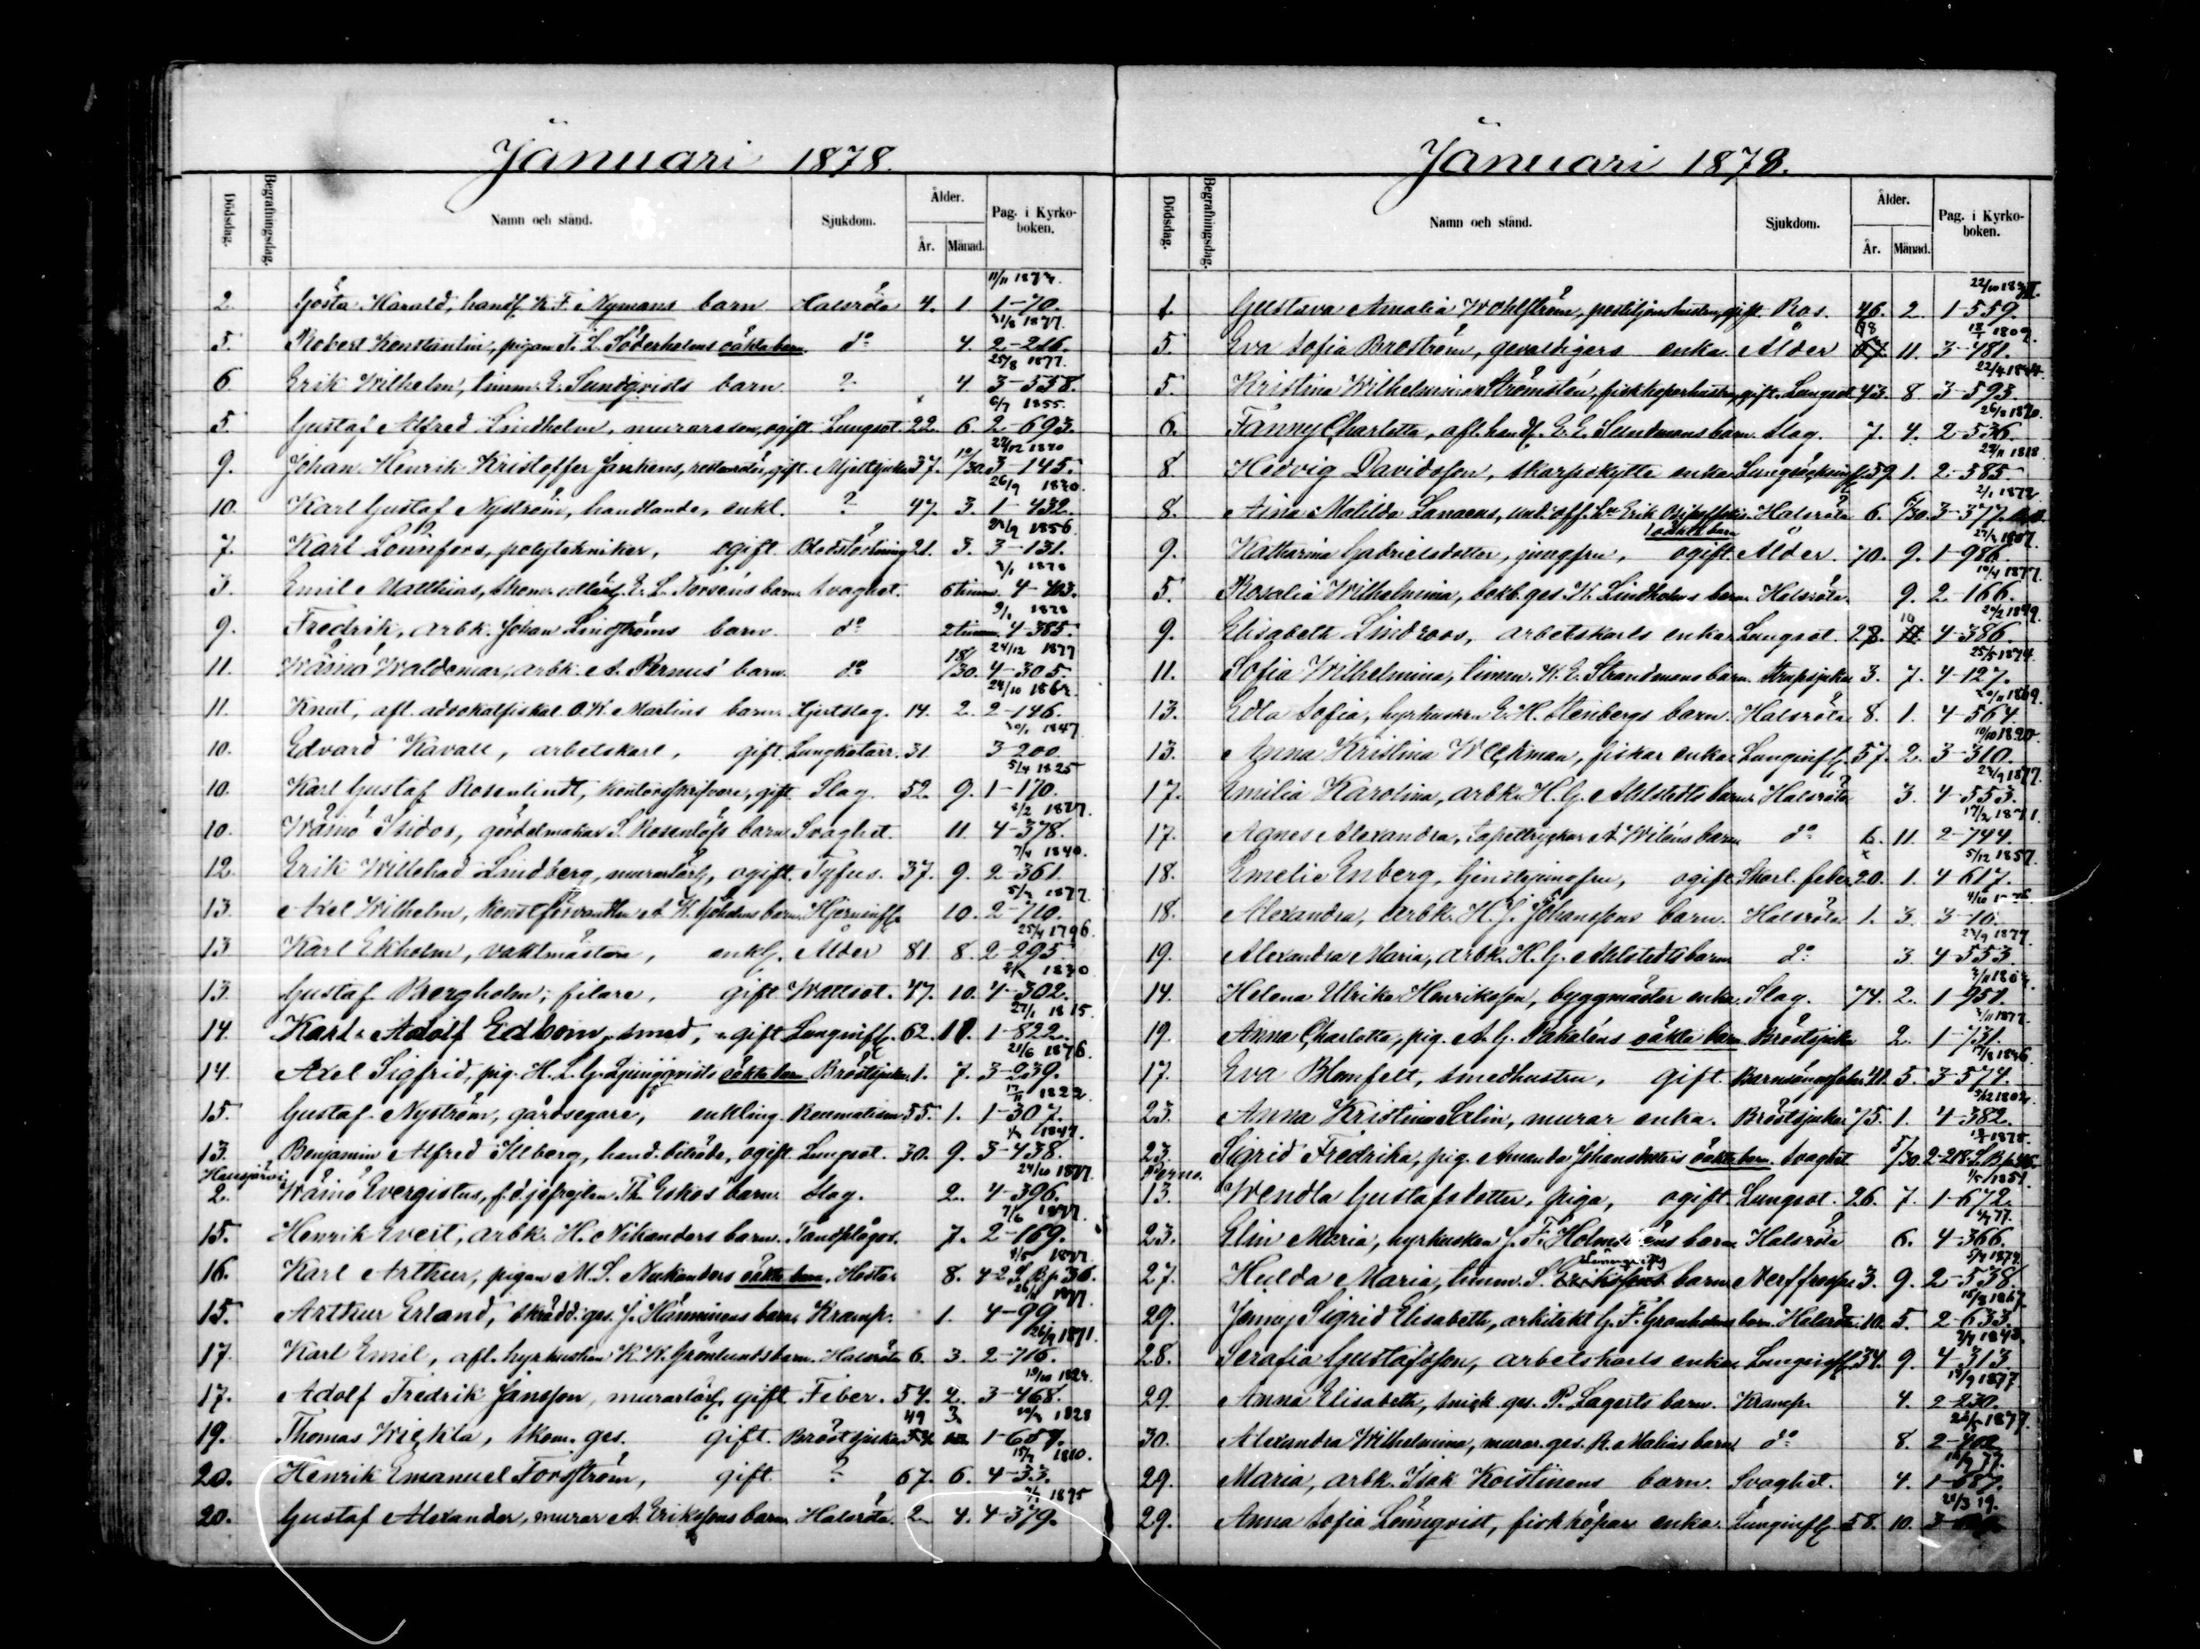 Januari 1878.
Dödsdag. Begrafningsdag. Namn och stånd. Sjukdom. Ålder. År. Månad. Pag. i Kyrkoboken.
11/11 1873.
2. Gösta Harald, handl. K. F. Nymans barn Halsröta 4. 1. 1-70.
31/8 1877.
5. Robert Konstantin, pigan F. L. Söderholms oäkta barn. do 4. 2-216.
25/8 1877.
6. Erik Wilhelm, timm. E. Sundqvists barn ? 4. 3-558.
6/7 1855.
5. Gustaf Alfred Lindholm, murareson, ogift Lungsot. 22. 6. 2-693.
27/12 1840
9. Johan Henrik Kristoffer Jankens, gift. 37. 3-145.
26/9 1830.
10. Karl Gustaf Nyström, handlande, enkl. ? 47. 3. 1-432.
1856
7. Karl Lönnfors, polytekniker, ogift Blodstörtning 21. 3. 3-131.
3/1 1878
3. Emil Matthias, E. L. Forséns barn Svaghet. 6 timm. 4-403.
9/1 1878
9. Fredrik, arbk. Johan Lindströms barn. do 2 timm. 4-385.
24/12 1877
11. Wäinö Waldemar, arbk. A. Pernus' barn do 18/30. 4-305.
24/10 1862.
11. Knut, afl. advokatfiskal O. K. Martins barn. Hjertslag. 14. 2. 2-146.
20/1 1847
10. Edvard Kavall, arbetskarl, gift Lungkatarr. 31. 3-200.
5/4 1825
10. Karl Gustaf Rosenlindt, kontorsskrifvare, gift Slag. 52. 9. 1-170.
2/2 1877.
10. Wäinö Isidor, gördelmakar S. Rosenlöfs barn Svaghet. 11. 4-378.
7/4 1840.
12. Erik Willehad Lindberg, murarlärl, ogift. Tyfus. 37. 9. 2-361.
5/3 1877.
13. Axel Wilhelm, konstförvandten A. W. barn. Hjerninfl. 10. 2-710.
25/4 1796.
13. Karl Ekholm, vaktmästare, enkl. Ålder 81. 8. 2-295.
1830
13. Gustaf Bergholm, filare, gift Wattsot. 47. 10. 4-302.
27/1 1815.
14. Karl Adolf Edbom, smed, gift Lunginfl. 62. 11. 1-822.
21/6 1876.
14. Axel Sigfrid, pig. H. L. G. Ljungqvists oäkta barn Bröstsjuka. 1. 7. 3-239.
1822.
15. Gustaf Nyström, gårdsegare, enkling. Reumatism 55. 1. 1-307.
1847.
13. Benjamin Alfred Illberg, hand. biträde, ogift Lungsot. 30. 9. 3-438.
Hausjärvi 24/10 1877.
2. Wäinö Evergistus, Th. Eskos barn. Slag. 2. 4-396.
7/6 1877.
15. Henrik Evert, arbk. H. Nikanders barn. Tandplågor. 7. 2-169.
4/5 1877
16. Karl Arthur, pigan M. S. Neukanders oäkta barn. Hosta. 8. 4-2 L. B. p. 36.
26/11 1877.
15. Arthur Erland, skrädd. ges. J. Hänninens barn. Kramp. 1. 4-99.
26/9 1871.
17. Karl Emil, afl. hyrkusken K. W. Grönlunds barn. Halsröta 6. 3. 2-716.
17. Adolf Fredrik Jansson, murarlärl, gift Feber. 54. 2. 3-468.
49 3 1828
19. Thomas Wichta, skom. ges. gift. Bröstsjuka 1-657.
15/7 1810.
20. Henrik Emanuel Fordström, gift ? 67. 6. 4-33.
1875
20. Gustaf Alexander, murar A. Erikssons barn Halsröta. 2. 4. 4-379.
Januari 1878.
Dödsdag. Begrafningsdag. Namn och stånd. Sjukdom. Ålder. År. Månad. Pag. i Kyrkoboken.
1. Gustava Amalia Wohlström, postiljonshustru, gift. Ros. 46. 2. 1-559.
68 1809.
5. Eva Sofia Broström, gevaldigers enka Ålder 67. 11. 3-481.
22/4 1834.
5. Kristina Wilhelmina Strömsten, fiskköparhustru, gift. Lungsot 43. 8. 3-593.
26/8 1870.
6. Fanny Charlotta, afl. handl. E. E. Sundmans barn. Slag. 7. 4. 2-536.
29/11 1818
8. Hedvig Davidsson, skarpskytte enka 59. 1. 2-585.
2/1 1872.
8. Aina Matilda Lanaeus, und. off. Erik Halsröta 6. 6/30 3-377.
oäkta barn 1807.
9. Katharina Gabrielsdotter, jungfru, ogift Ålder. 70. 9. 1-986.
10/4 1877.
5. Rosalia Wilhelmina, bokb. ges. W. Lindholms barn. Halsröta. 9. 2-166.
9. Elisabeth Lindroos, arbetskarls enka Lungsot. 28. 10 4-386.
25/5 1874.
11. Sofia Wilhelmina, timm. K. E. Strandmans barn. Strupsjuka 3. 7. 4-127.
20/11 1869.
13. Edla Sofia, hyrkusken E. H. Stenbergs barn. Halsröta 8. 1. 4-564.
10/10 1820.
13. Anna Kristina Weckman, fiskar enka Lunginfl. 57. 2. 3-310.
23/9 1877.
17. Emilia Karolina, arbk. H. G. Ahlstedts barn Halsröta 3. 4-553.
17/2 1871.
17. Agnes Alexandra, tapettryckar A. Wiléns barn do 6. 11. 2-744.
5/12 1857.
18. Emelie Enberg, tjenstejungfru, ogift Skarl. feber 20. 1. 4-617.
18. Alexandra, arbk. H. J. Johanssons barn. Halsröta 1. 3. 3-10.
23/9 1877.
19. Alexandra Maria, arbk. H. G. Ahlstedts barn do 3. 4-553.
14. Helena Ulrika Henriksson, byggmäster enka Slag. 74. 2. 1-951.
1877.
19. Anna Charlotta, pig. A. G. Pakaléns oäkta barn Bröstsjuka 2. 1-731.
1836.
17. Eva Blomfelt, smedhustru, gift. Barnsängsfeber 41. 5. 3-574.
1802.
23. Anna Kristina Salin, murar enka. Bröstsjuka 75. 1. 4-382.
1878.
23. Sigrid Fredrika, pig. Amanda Johansdotters oäkta barn. Svaghet 5/30. 2-218. L. B. p. 46.
Perno. 1/5 1851.
13. Wendla Gustafsdotter, piga, ogift. Lungsot. 26. 7. 1-672.
77.
23. Elin Maria, hyrkusken J. F. Holmströms barn Halsröta 6. 4-366.
5/4 1874.
27. Hulda Maria, timm. S. barn Nerffeber 3. 9. 2-538.
15/8 1867.
29. Jenny Sigrid Elisabeth, arkitekt G. F. Granholms barn. Halsröta. 10. 5. 2-633.
1843.
28. Serafia Gustafsson, arbetskarls enka Lunginfl. 34. 9. 4-313.
1877.
29. Anna Elisabeth, snick. ges. P. Lagerts barn. Kramp. 4. 2-230.
1877.
30. Alexandra Wilhelmina, murar. ges. R. Malias barn do 8. 2-402.
77.
29. Maria, arbk. Isak Koistinens barn. Svaghet. 4. 1-687.
25/3 19.
29. Anna Sofia Lönnqvist, fiskköpar enka. Lunginfl. 58. 10. 3-